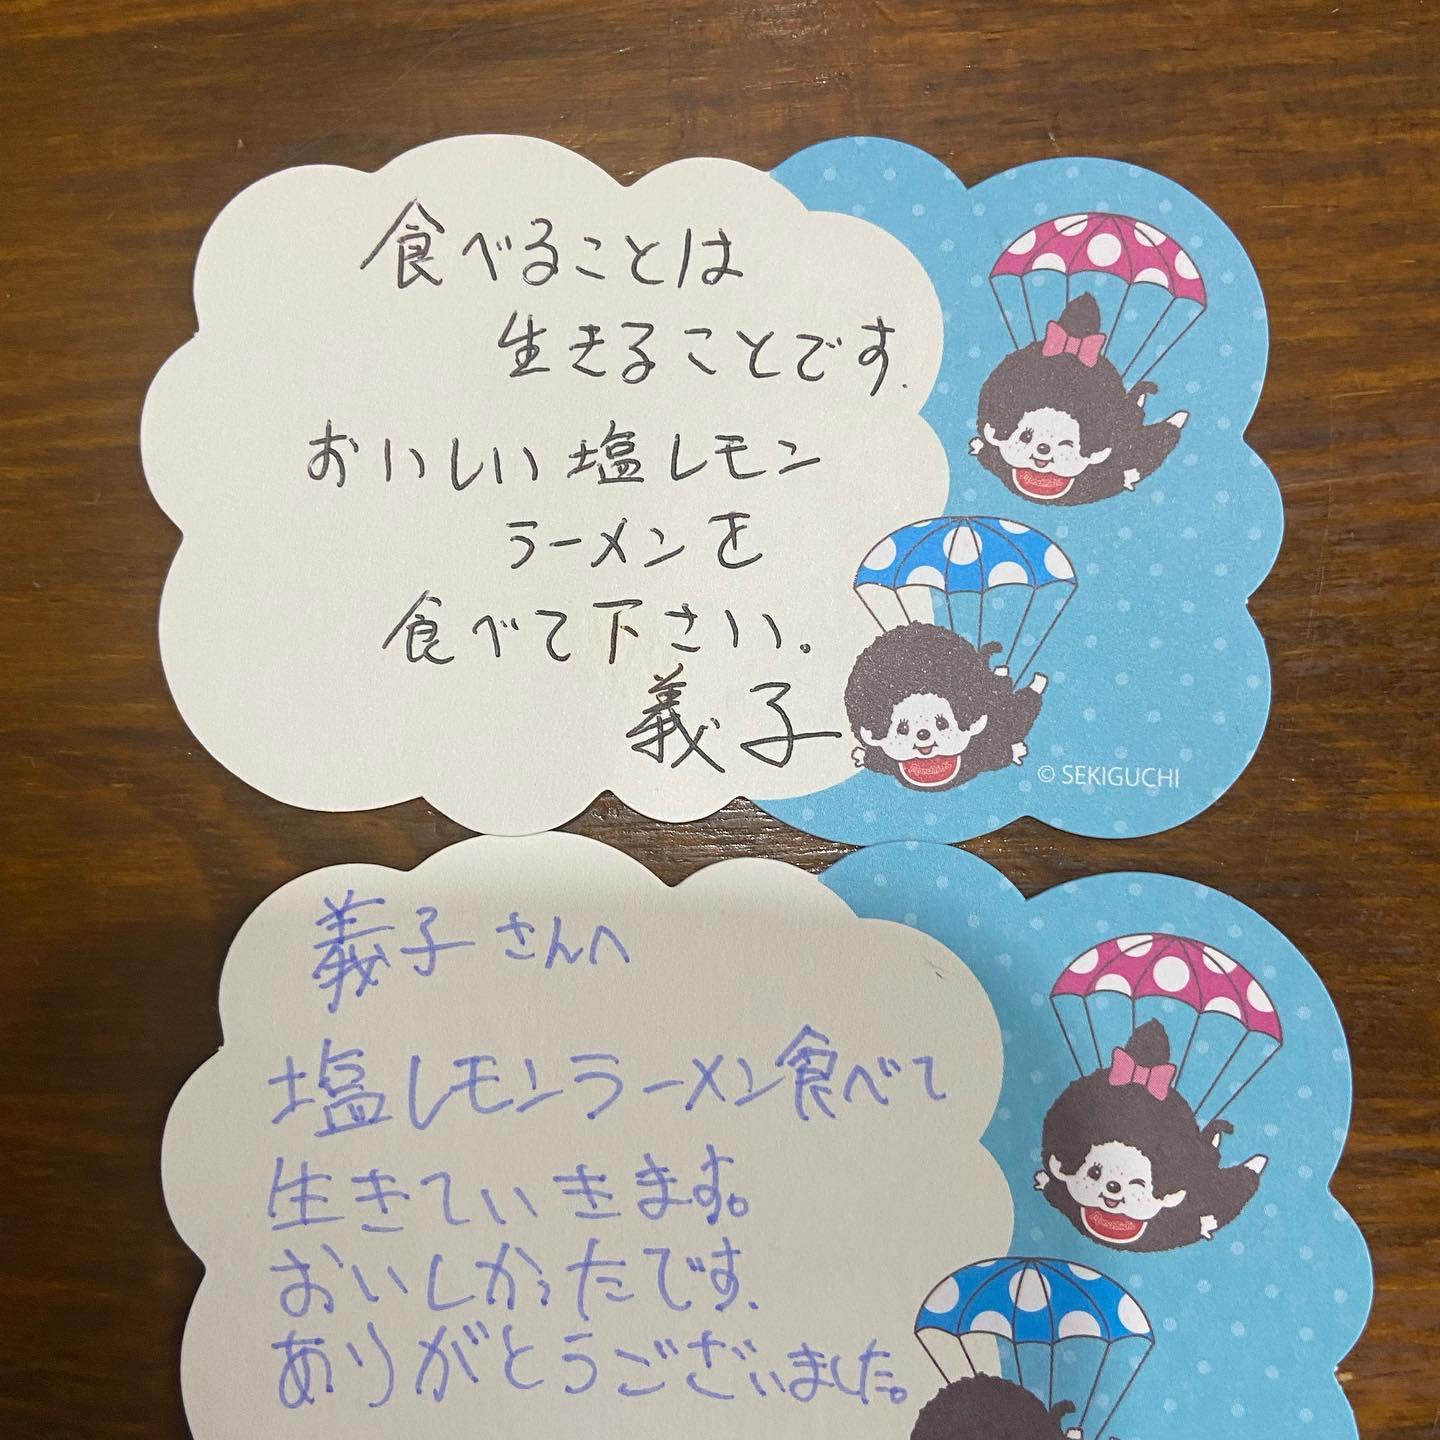 食べることは
生きることです.
おいしい塩レモン
ラーメンを
食べて下さい。
義子
© SEKIGUCHI
義子さんへ
塩レモンラーメン食べて
生きていきます。
おいしかったです.
ありがとうございました。